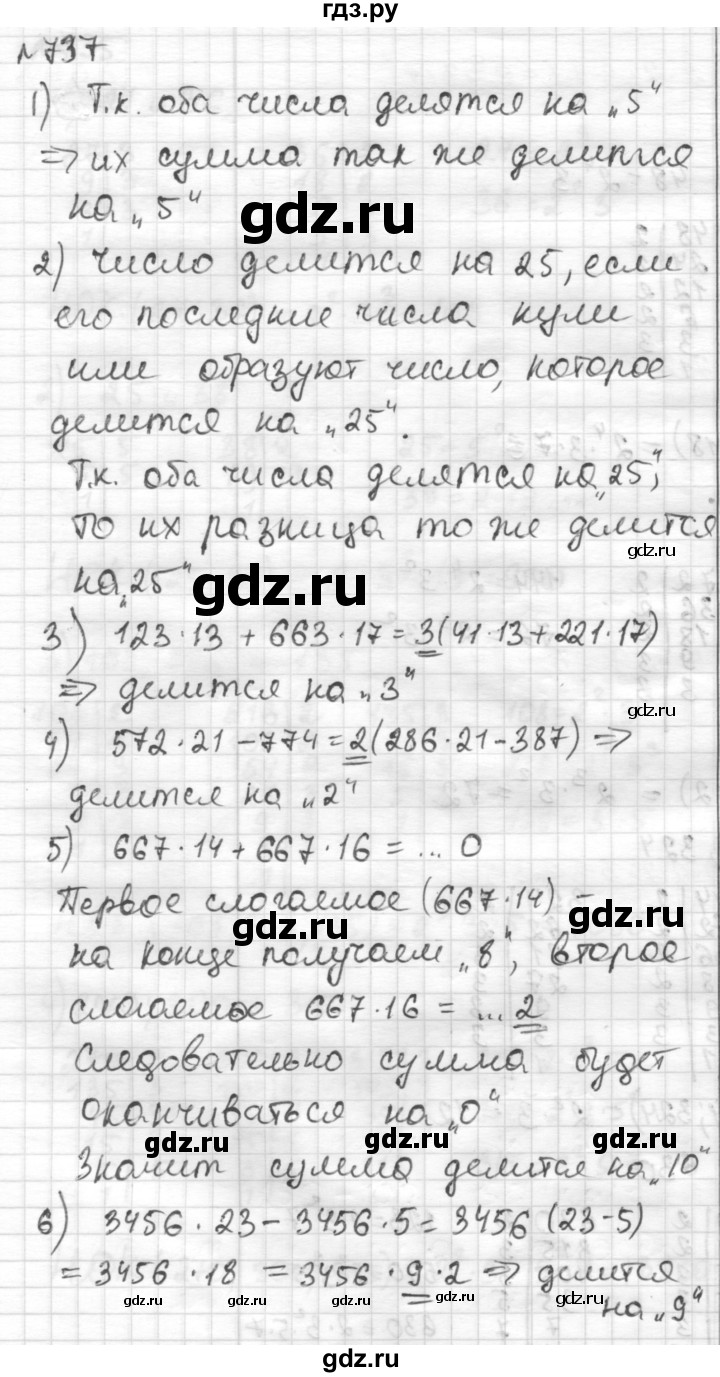 гдз.ру
№737
1) Т.к. оба числа делятся на „5“
=> их сумма так же делится
на „5“
gdz.ru
2) Число делится на 25, если
его последние числа нули
или образуют число, которое
делится на „25“.
Т.к. оба числа делятся на „25“,
то их разница то же делится
gdz.ru
на „25“
gdz.ru
3) 123·13 + 663·17 = 3(41·13+221·17)
=> делится на „3“
gdz.ru
4) 572·21 – 774 = 2(286·21–387) =>
делится на „2“
5) 667·14 + 667·16 = ... 0
Первое слогаемое (667·14) –
gdz.ru
на конце получаем „8“, второе
слогаемое 667·16 = ... 2
Следовательно сумма будет
оканчиваться на „0“
gdz.ru gdz.ru gdz.ru
Значит сумма делится на „10“
6) 3456·23 – 3456·5 = 3456 (23–5)
= 3456·18 = 3456·9·2 => делится
gdz.ru gdz.ru gdz.ru gdz.ru
на „9“
gdz.ru